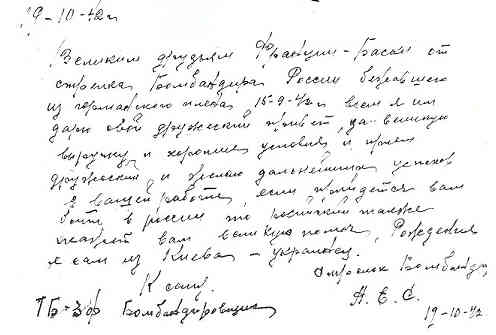 19-10-42 г
Великим друзьям Франции - Басан от
стрелка Бомбандира России бежавшего
из германского плена 15-9-42 г всем я им
дарю свой дружеский привет, за вашу
выручку и хорошие условия и прием
дружеский и желаю дальнейших успехов
в вашей работе, если придется вам
быть в россии то также
вам великую помощь, Рождения
я сам из Киева - украинец.
К сему
Стрелок Бомбандир
ТБ-3ф Бомбандировщик Н. Е. С.
19-10-42